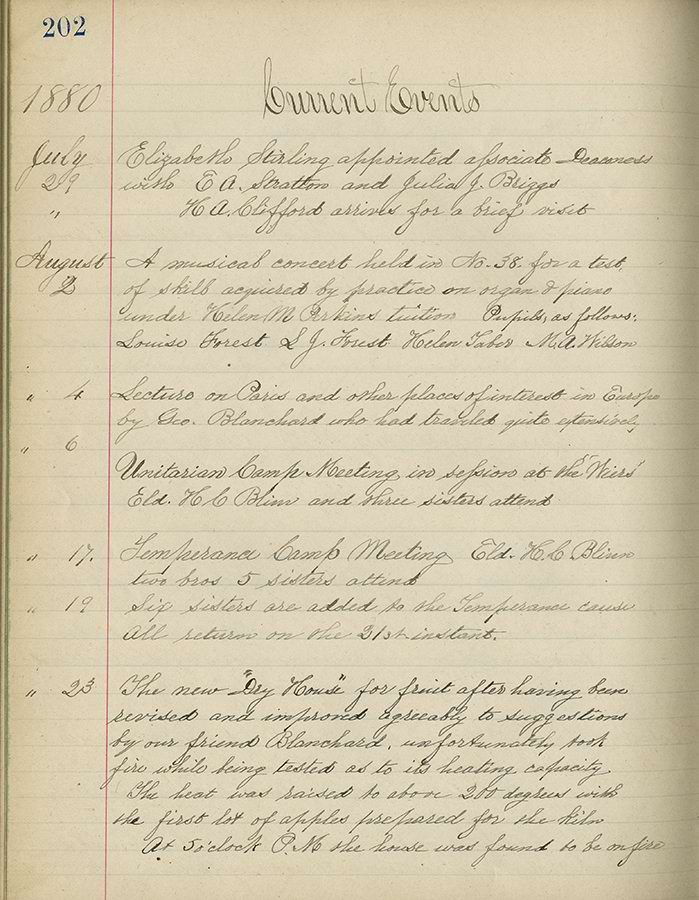 202
1880 Current Events
July Elizabeth Stirling appointed associate Deaconess
29 with E A. Stratton and Julia J. Briggs
" H A. Clifford arrives for a brief visit
August A musical concert held in No. 38. for a test
2 of skill acquired by practice on organ & piano
under Helen M Perkins tuition Pupils, as follows:
Louise Forest L J. Forest Helen Taber M. A. Wilson
" 4 Lecture on Paris and other places of interest in Europe
by Geo. Blanchard who had traveled quite extensively
" 6
Unitarian Camp Meeting in session at the "Weirs"
Eld. H C Blinn and three sisters attend
" 17. Temperance Camp Meeting Eld. H. C Blinn
two bros 5 sisters attend
" 19 Six sisters are added to the Temperance cause
All return on the 21st instant.
" 23 The new "Dry House" for fruit after having been
revised and improved agreeably to suggestions
by our friend Blanchard, unfortunately took
fire while being tested as to its heating capacity
The heat was raised to above 200 degrees with
the first lot of apples prepared for the kiln
At 5 o'clock P. M the house was found to be on fire